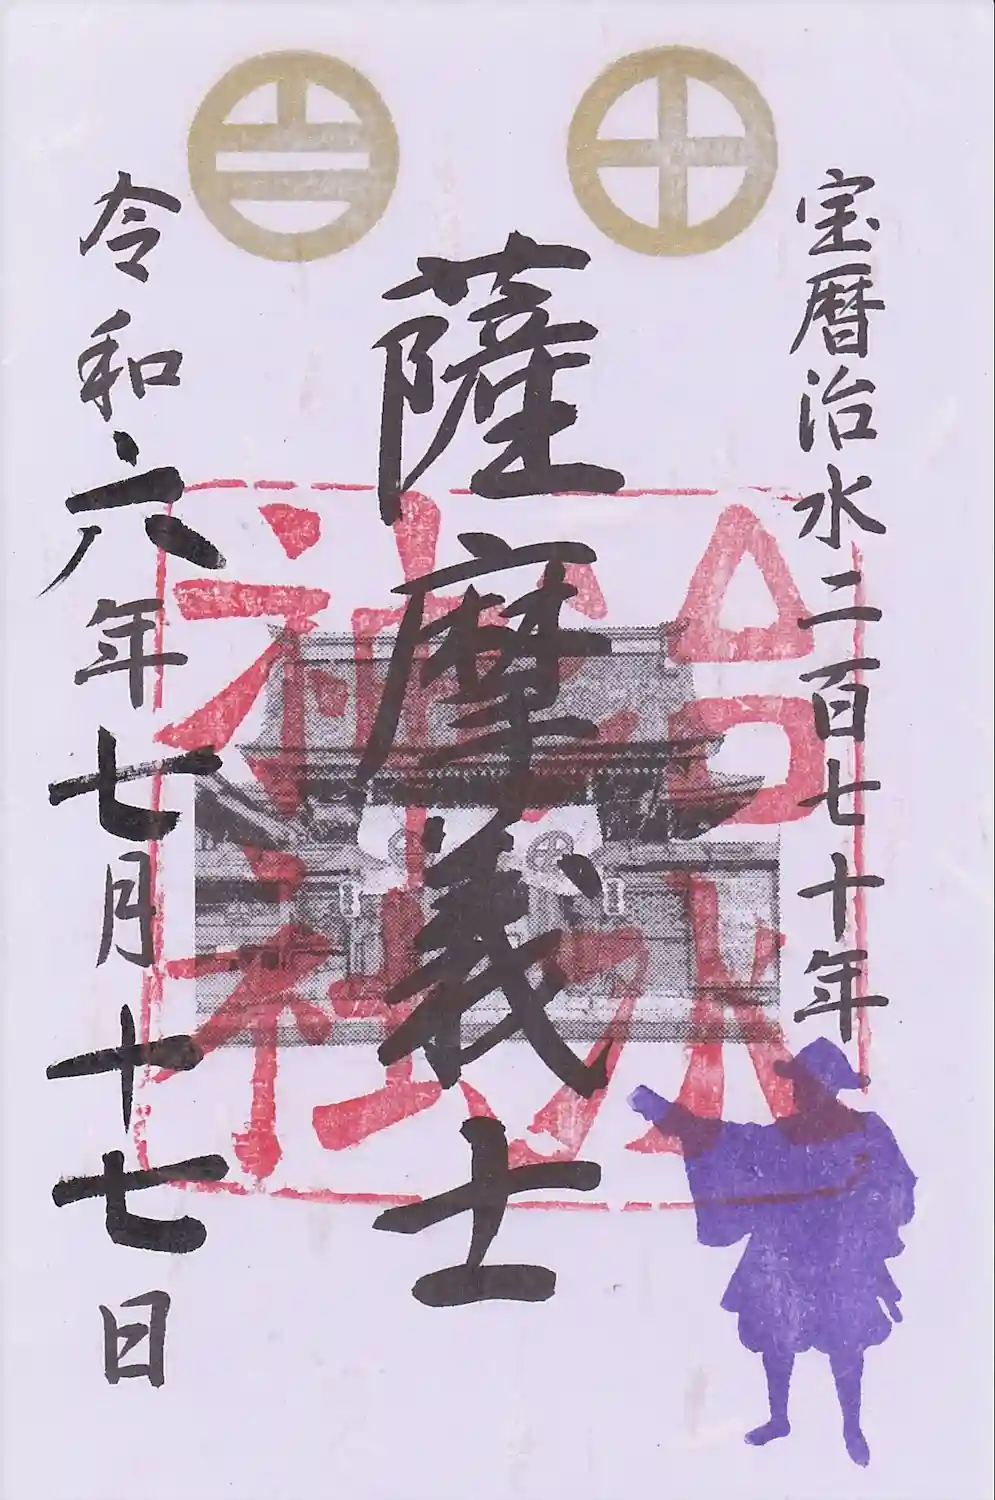 宝暦治水二百七十年
薩摩義士
治水
神社
令和六年七月十七日